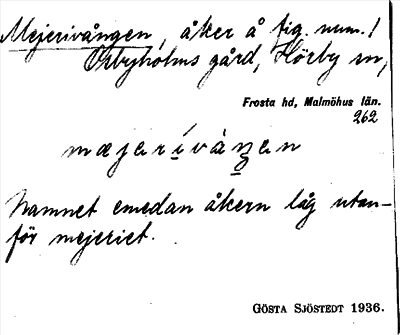 Mejerivången, åker å fig. num. 1
Osbyholms gård, Hörby sn,
Frosta hd, Malmöhus län.
262
mæjerívàŋen
Namnet emedan åkern låg utan-
för mejeriet.
GÖSTA SJÖSTEDT 1936.